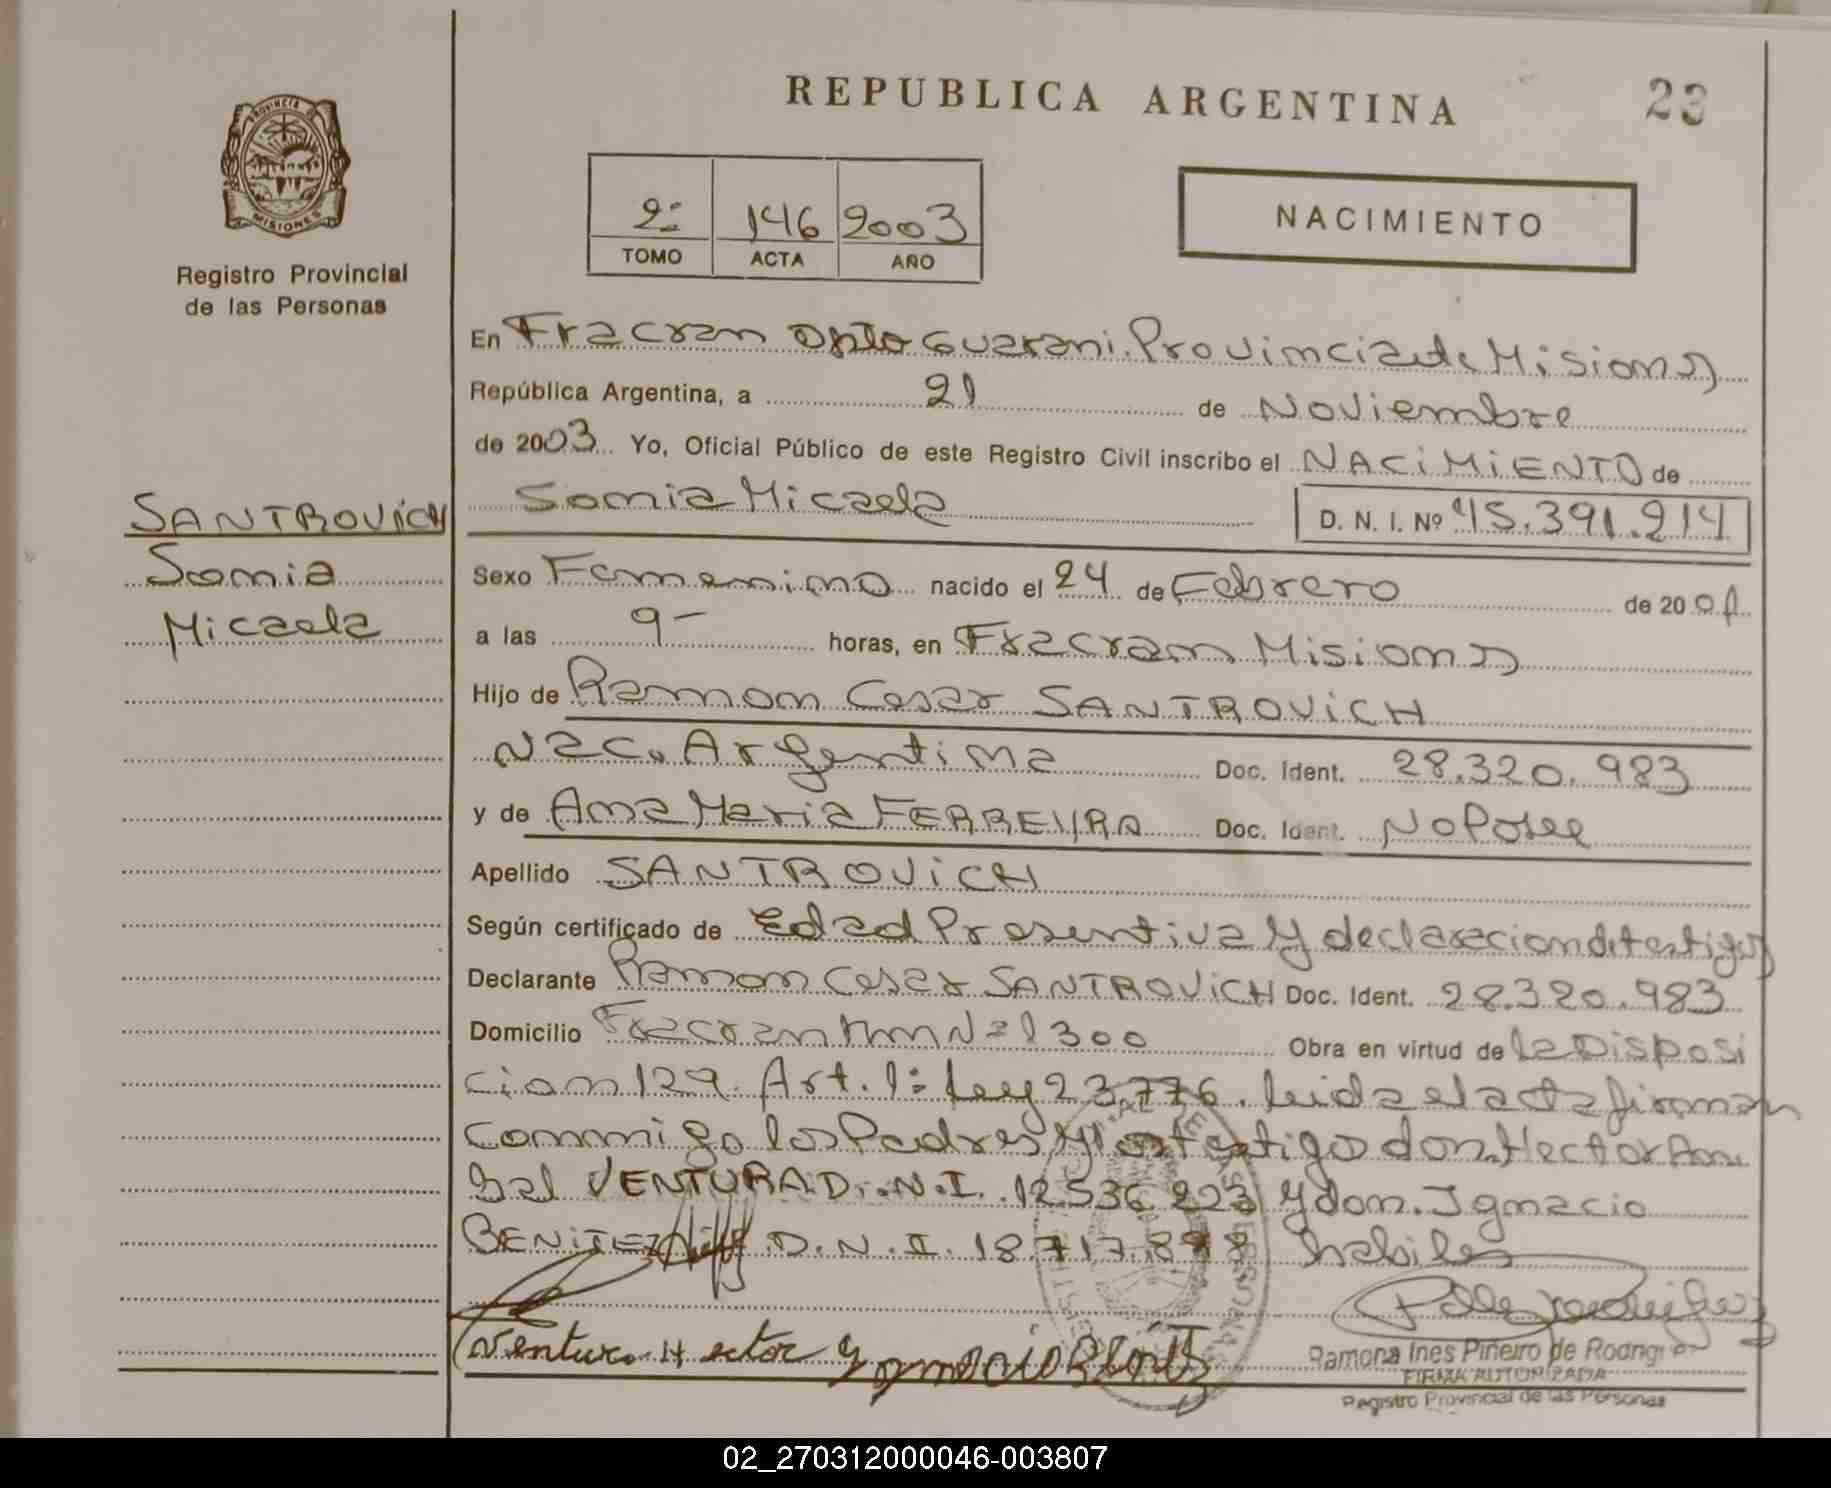 REPUBLICA ARGENTINA
23
PROVINCIA
MISIONES
Registro Provincial
de las Personas
2º 146 2003
TOMO ACTA AÑO
NACIMIENTO
En Fracran Dpto Guarani. Provincia de Misiones
República Argentina, a 21 de Noviembre
de 2003 Yo, Oficial Público de este Registro Civil inscribo el NACIMIENTO de
Sonia Micaela D. N. I. Nº 45.391.214
SANTROVICH
Sonia
Micaela
Sexo Femenino nacido el 24 de Febrero de 200
a las 9- horas, en Fracran Misiones
Hijo de Ramon Cesar SANTROVICH
Nac. Argentina Doc. Ident. 28.320.983
y de Ana Maria FERREYRA Doc. Ident. No Posee
Apellido SANTROVICH
Según certificado de Edad Presentiva y declaracion de testigos
Declarante Ramon Cesar SANTROVICH Doc. Ident. 28.320.983
Domicilio Fracran Km Nº 1300 Obra en virtud de la Disposi
cion 129. Art. 1º Ley 23.776. leida el acta firman
conmigo los Padres y los testigo don Hector Ani
bal VENTURA D.N.I. 12.536.223 y don. Ignacio
BENITEZ D.N.I. 18.717.898 habiles
Ventura Hector Ygnacio Benit
Ramona Ines Piñeiro de Rodrig
FIRMA AUTORIZADA
Registro Provincial de las Personas
02_270312000046-003807